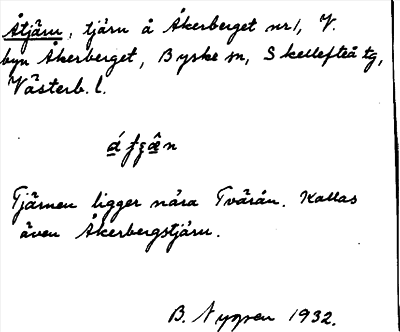 Åtjärn, tjärn å Åkerberget nr 1, V.
byn Åkerberget, Byske sn, Skellefteå tg,
Västerb. l.
Tjärnen ligger nära Tvärån. Kallas
även Åkerbergstjärn.
B. 1932.